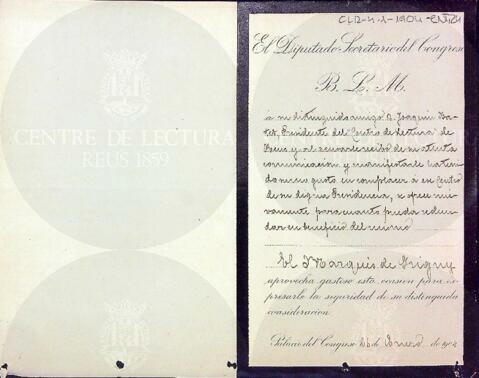 CENTRE DE LECTURA
REUS 1859
El Diputado Secretario del Congreso
B. L. M.
á su distinguido amigo D. Joaquin
Presidente del Centro de Lectura de
Reus y al acusarle recibo de su atenta
comunicacion y manifestarle ha teni-
do sumo gusto en complacer á ese Centro
de su digna Presidencia, se ofrece
vamente para cuanto pueda redun-
dar en beneficio del mismo
El Marqués de Grigny
aprovecha gustoso esta ocasion para ex-
presarle la seguridad de su distinguida
consideracion.
Palacio del Congreso 26 de Enero de 1904